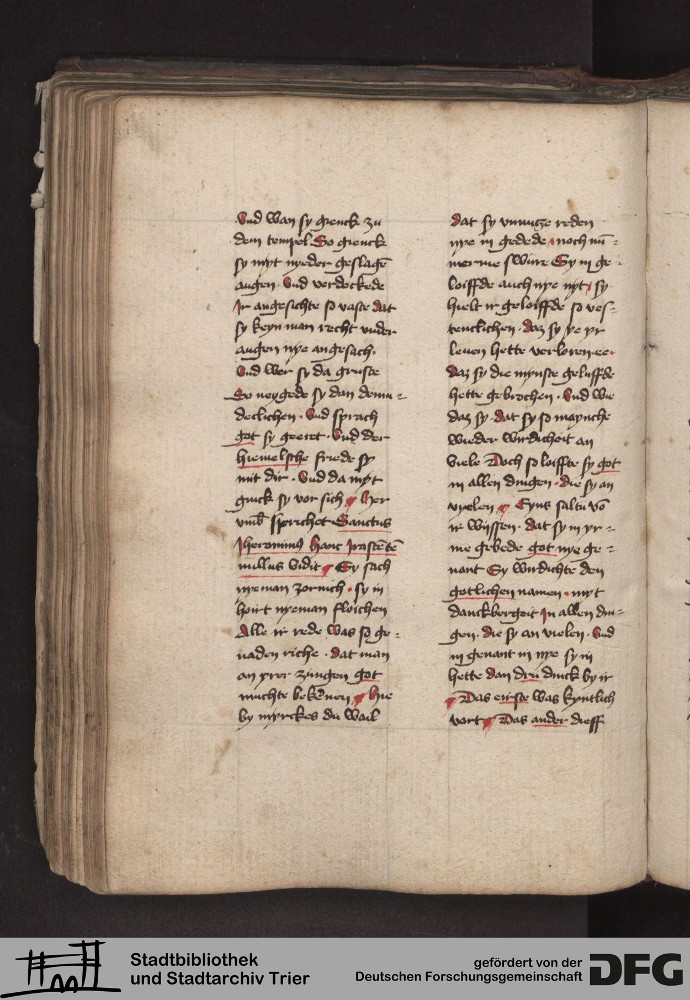 Vnd wan sy gienck zu
dem tempel So gienck
sy myt nyeder geslagē
augen. Vnd verdeckede
Ir angesichte so vaste dat
sy keyn man recht vnder
augen nye angesach.
Vnd wer sy da gruste
So neygede sy dan demu-
declichen. Vnd sprach
got sy geeret. Vnd der
hiemelsche friede sy
mit dir. Vnd da myt
ginck sy vor sich her
vmb sprichet Sanctus
Jheronimus hanc
nullus vidit Sy sach
nyeman zornich. sy in
hoirt nyeman floichen
Alle ir rede was so ge-
naden riche. dat man
an yrer zungen got
muchte bekēnen hie
by myrckes du wail
Dat sy vnnutze reden
nye in gedede. noch nū-
merme swüre Sy in ge-
loiffde auch nye nyt sy
hielt ir geloiffde so ves-
tenclichen. daz sy ye yr
leuen hette verloren. ee.
Daz sy die mynste geluffde
hette gebrochen. Vnd wie
daz sy. dat sy so maynche
wieder wirdicheit an
viele Doch so loiffte sy got
in allen dingen. die sy an
vyelen Eyns saltu vō
ir wyssen. dat sy in yr-
me gebede got nye ge-
nant Sy wirdichte den
gotlichen namen. myt
danckbergeit in allen din-
gen. die sy an vielen. Vnd
in genant in nye sy in
hette dan dru dinck by ir
Das eirste was kyntlich
vort Das ander dieff
Stadtbibliothek
und Stadtarchiv Trier
gefördert von der
Deutschen Forschungsgemeinschaft
DFG